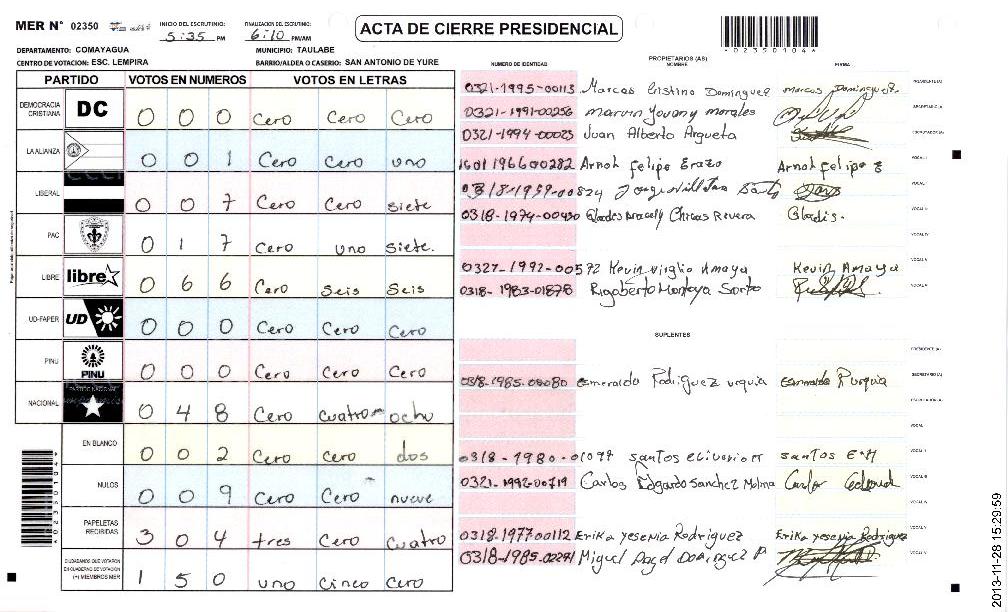 MER N° 02350
INICIO DEL ESCRUTINIO: 5:35 PM
FINALIZACION DEL ESCRUTINIO: 6:10 PM/AM
ACTA DE CIERRE PRESIDENCIAL
*02350104*
DEPARTAMENTO: COMAYAGUA
MUNICIPIO: TAULABE
CENTRO DE VOTACION: ESC. LEMPIRA
BARRIO/ALDEA O CASERIO: SAN ANTONIO DE YURE
PARTIDO VOTOS EN NUMEROS VOTOS EN LETRAS
DEMOCRACIA CRISTIANA DC 0 0 0 Cero Cero Cero
LA ALIANZA 0 0 1 Cero Cero uno
LIBERAL 0 0 7 Cero Cero siete
PAC 0 1 7 Cero uno siete.
LIBRE libre 0 6 6 Cero Seis Seis
UD-FAPER UD 0 0 0 Cero Cero Cero
PINU PINU 0 0 0 Cero Cero Cero
NACIONAL PARTIDO NACIONAL 0 4 8 Cero cuatro ocho
EN BLANCO 0 0 2 Cero Cero dos
NULOS 0 0 9 Cero Cero nueve
PAPELETAS RECIBIDAS 3 0 4 tres Cero Cuatro
CIUDADANOS QUE VOTARON EN CUADERNO DE VOTACION (+) MIEMBROS MER 1 5 0 uno Cinco Cero
PROPIETARIOS (AS)
NUMERO DE IDENTIDAD NOMBRE FIRMA
0321-1995-00113 Marcos Cristino Dominguez Marcos Dominguez. PRESIDENTE(A)
0321-1991-00256 marvin Jovany morales SECRETARIO(A)
0321-1994-00023 Juan Alberto Argueta ESCRUTADOR(A)
1601 1966 00282 Arnol felipe Erazo Arnol felipe E VOCAL I
0318-1959-00824 VOCAL
0318-1974-00430 Gladis Aracely Chicas Rivera Gladis. VOCAL
VOCAL
0327-1992-00572 Kevin Virgilio Amaya Kevin Amaya VOCAL
0318-1983-01878 Rigoberto Montoya Sorto VOCAL
SUPLENTES
PRESIDENTE (A)
0318-1985-00080 Esmeralda Rodriguez urquia SECRETARIO (A)
ESCRUTADOR (A)
VOCAL
0318-1980-01097 santos santos E*M VOCAL
0321-1992-00719 Carlos Edgardo Sanchez Molina Carlos VOCAL
VOCAL
0318-1977 00112 Erika yesenia Rodriguez Erika yesenia Rodriguez VOCAL
0318-1985-02291 Miguel Angel Dominguez P VOCAL
*02350104*
2013-11-28 15:29:59